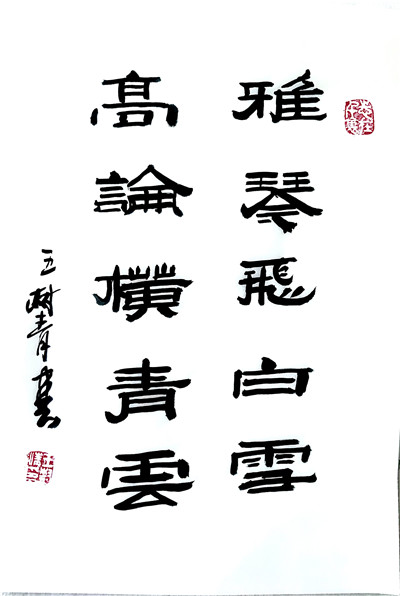 雅琴飛白雪
高論橫青雲
王樹青書